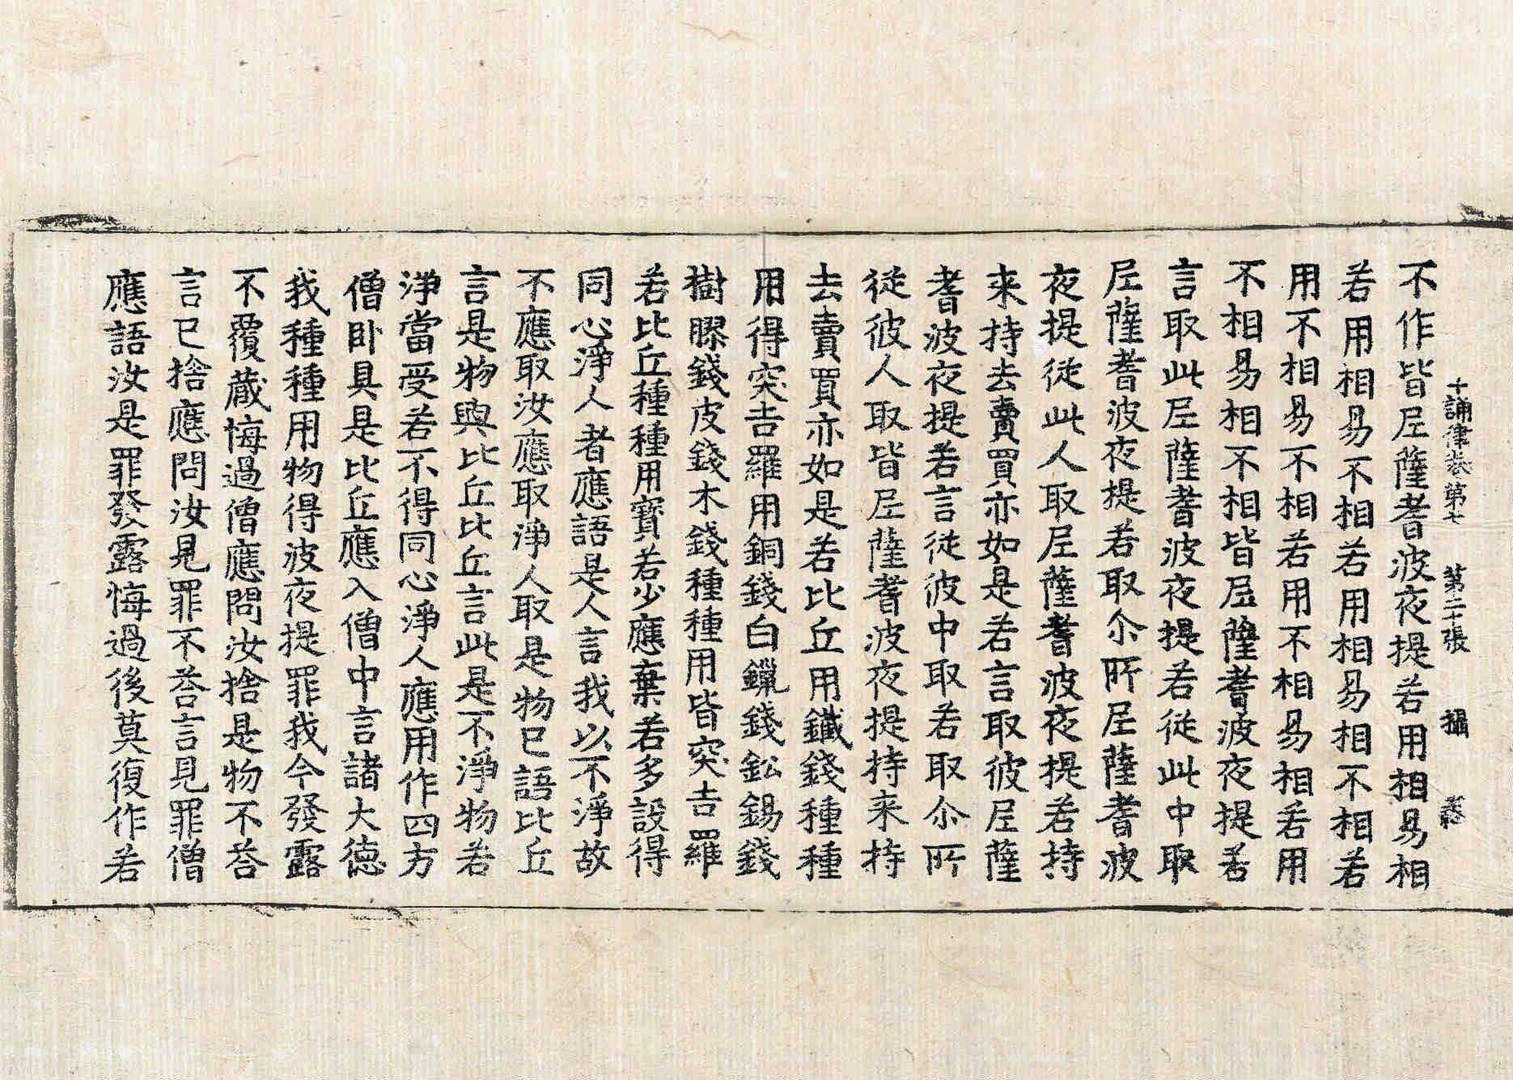 十誦律卷第七 第二十張 攝
不作皆尼薩耆波夜提若用相易相
若用相易不相若用相易相不相若
用不相易不相若用不相易相若用
不相易相不相皆尼薩耆波夜提若
言取此尼薩耆波夜提若從此中取
尼薩耆波夜提若取尒所尼薩耆波
夜提從此人取尼薩耆波夜提若持
来持去賣買亦如是若言取彼尼薩
耆波夜提若言從彼中取若取尒所
從彼人取皆尼薩耆波夜提持来持
去賣買亦如是若比丘用鐵錢種種
用得突吉羅用銅錢白鑞錢鈆錫錢
樹膠錢皮錢木錢種種用皆突吉羅
若比丘種種用寶若少應棄若多設得
同心淨人者應語是人言我以不淨故
不應取汝應取淨人取是物已語比丘
言是物與比丘比丘言此是不淨物若
淨當受若不得同心淨人應用作四方
僧卧具是比丘應入僧中言諸大德
我種種用物得波夜提罪我今發露
不覆蔵悔過僧應問汝捨是物不荅
言已捨應問汝見罪不荅言見罪僧
應語汝是罪發露悔過後莫復作若